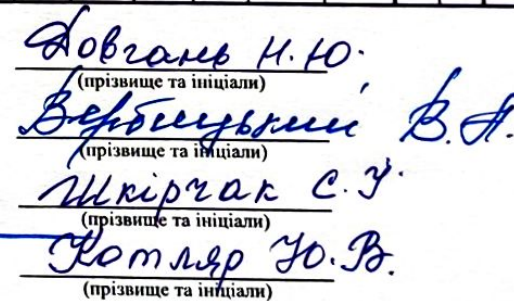 Довгань Н.Ю.
(прізвище та ініціали)
Вербицький В.П.
(прізвище та ініціали)
Шкірчак С.І.
(прізвище та ініціали)
Котляр Ю.В.
(прізвище та ініціали)